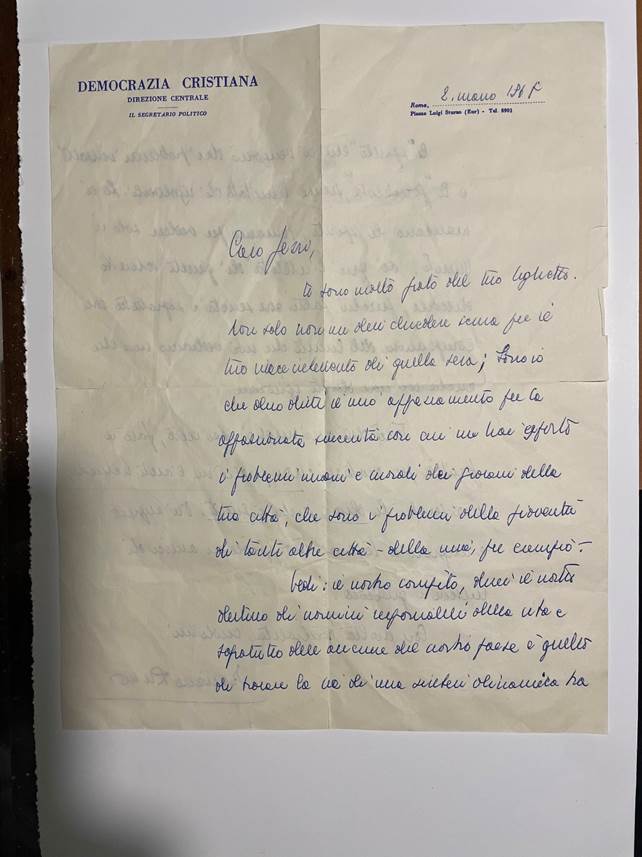 DEMOCRAZIA CRISTIANA
DIREZIONE CENTRALE
IL SEGRETARIO POLITICO
Roma, 2. marzo 196
Piazza Luigi Sturzo (Eur) - Tel. 5901
Caro
ti sono molto grato del tuo biglietto.
Non solo non mi devi chiedere scusa per il
tuo di quella sera; sono io
che devo dirti il mio apprezzamento per la
appassionata sincerità con cui mi hai esposto
i problemi umani e morali dei giovani della
tua città, che sono i problemi della gioventù
di tante altre città - della mia, per esempio -.
Vedi: il nostro compito, direi il nostro
destino di uomini responsabili della vita e
soprattutto delle del nostro paese è quello
di trovare la via di una sintesi dinamica tra